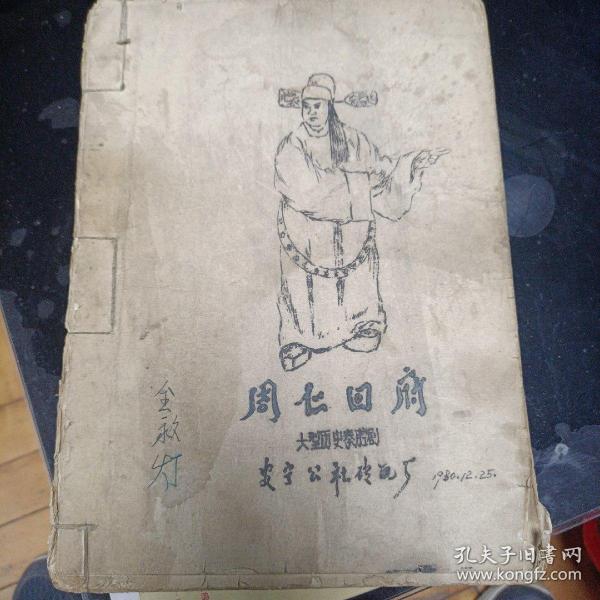 周仁回府
大型历史秦腔剧
安宁公社砖瓦厂 1980.12.25.
孔夫子旧书网
www.kongfz.com